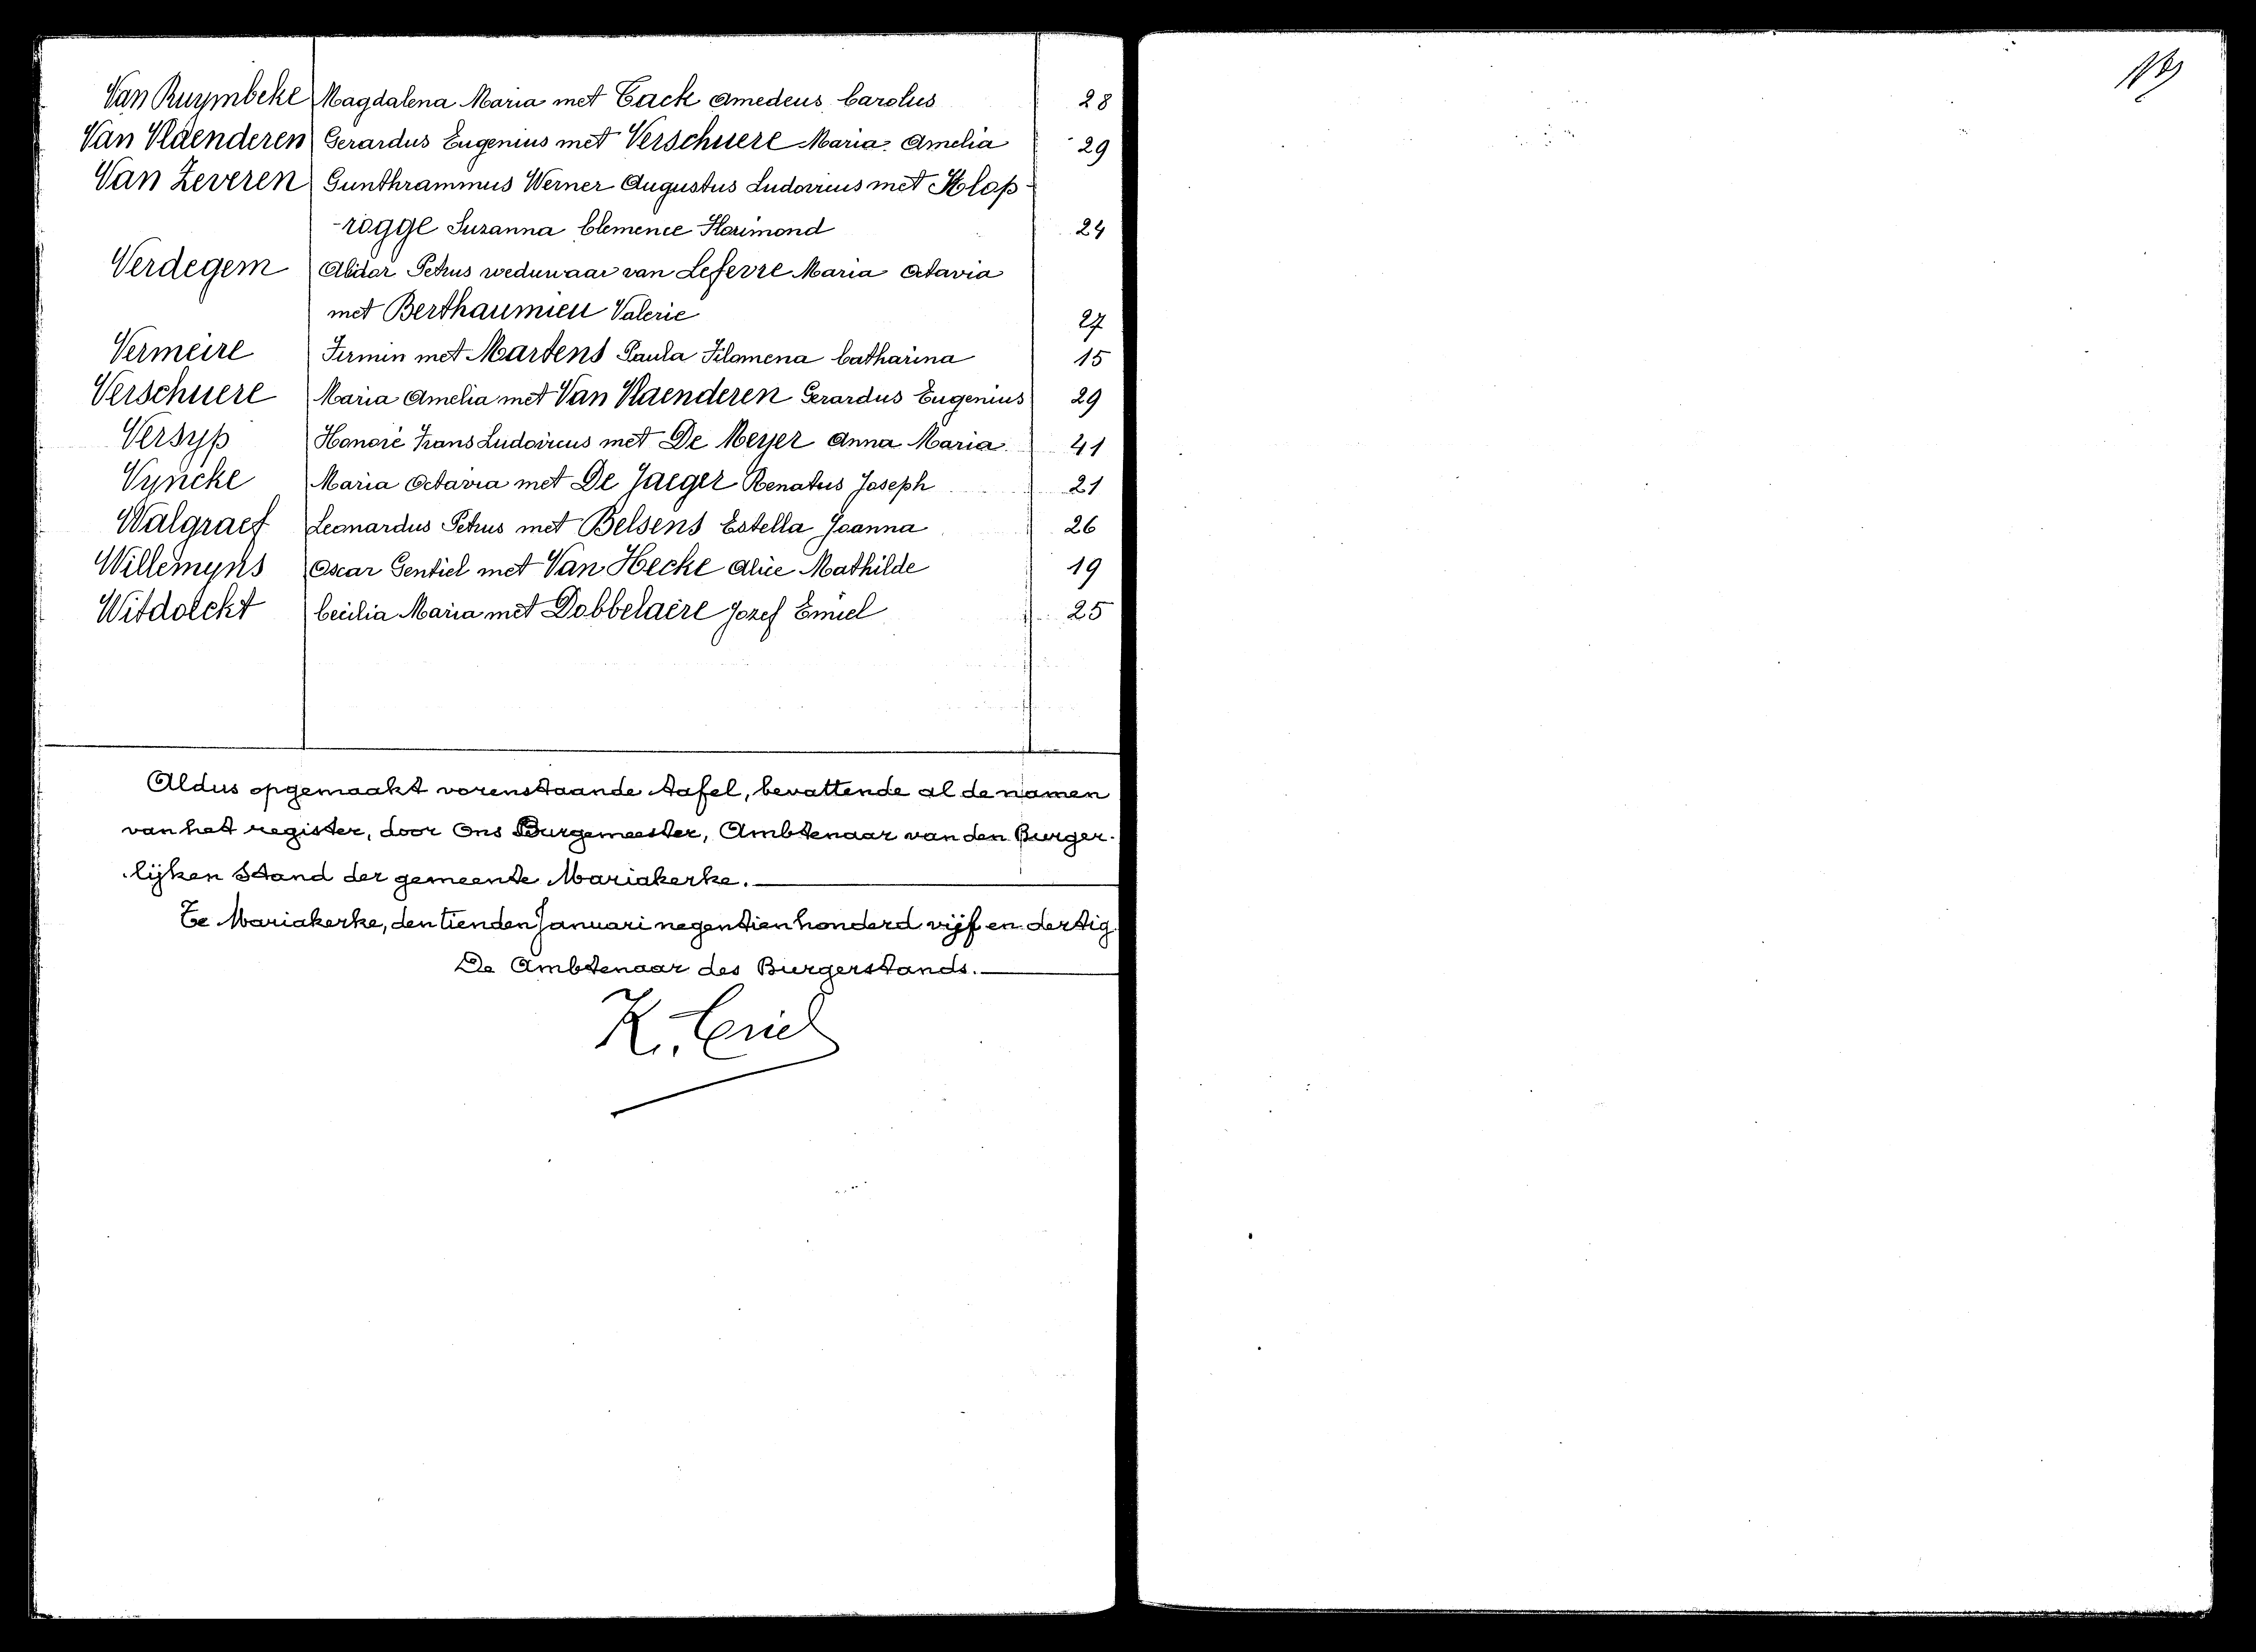 Van Ruymbeke Magdalena Maria met Tack Amedeus Carolus 28
Van Vlaenderen Gerardus Eugenius met Verschuere Maria Amelia 29
Van Zeveren Gunthrammus Werner Augustus Ludovicus met Klop-
-rogge Suzanna Clemence Florimond 24
Verdegem Alidor Petrus weduwaar van Lefevre Maria Octavia
met Berthaumieu Valerie 27
Vermeire Firmin met Martens Paula Filomena Catharina 15
Verschuere Maria Amelia met Van Vlaenderen Gerardus Eugenius 29
Versyp Honoré Frans Ludovicus met De Meyer Anna Maria 41
Vyncke Maria Octavia met De Jaeger Renatus Joseph 21
Walgraef Leonardus Petrus met Belsens Estella Joanna 26
Willemyns Oscar Gentiel met Van Hecke Alice Mathilde 19
Witdoeckt Cecilia Maria met Dobbelaere Jozef Emiel 25
Aldus opgemaakt vorenstaande tafel, bevattende al de namen
van het register, door Ons Burgemeester, Ambtenaar van den Burger-
lijken Stand der gemeente Mariakerke.
Te Mariakerke, den tienden Januari negentienhonderd vijf en dertig
De Ambtenaar des Burgerstands.
K. Criel